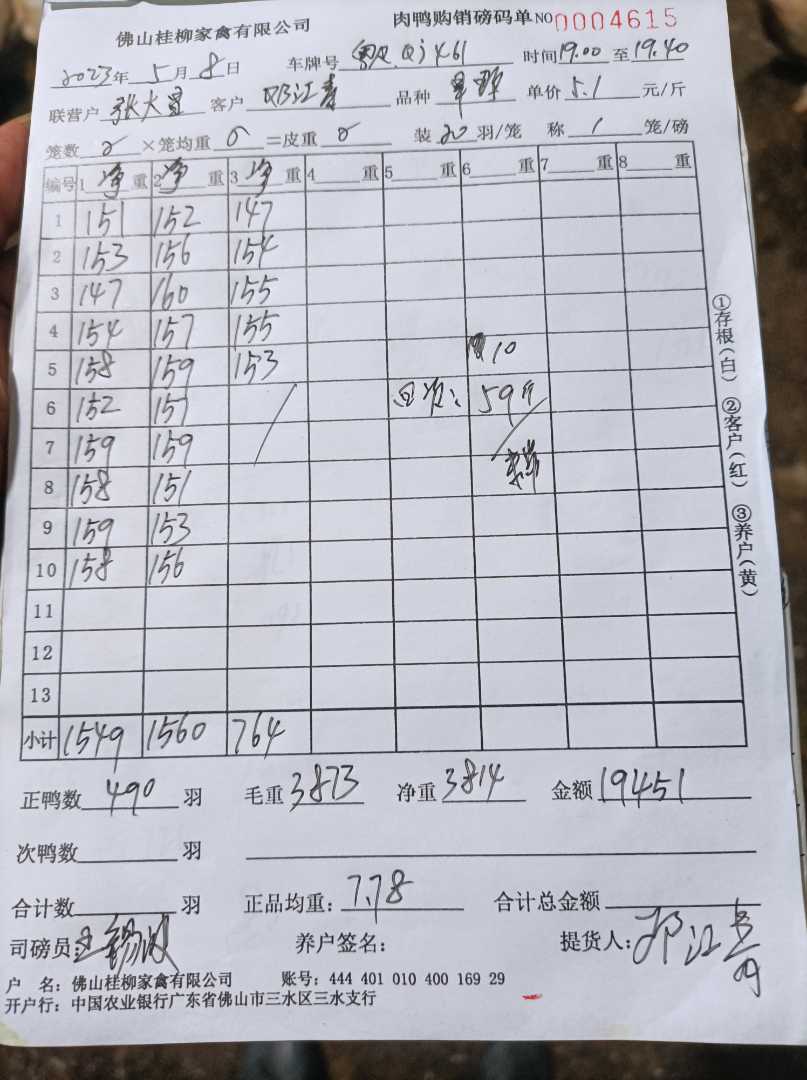 佛山桂柳家禽有限公司 肉鸭购销磅码单 NO 0004615
2023年 5月 8日 车牌号 时间 19.00 至 19.40
联营户 张大 客户 邓江 品种 单价 5.1 元/斤
笼数 ×笼均重 =皮重 装 20 羽/笼 称 1 笼/磅
编号 1 净 重 2 净 重 3 净 重 4 重 5 重 6 重 7 重 8 重
1 151 152 147
2 153 156 154
3 147 160 155
4 154 157 155
5 158 159 153 10
6 152 157 59斤
7 159 159
8 158 151
9 159 153
10 158 156
11
12
13
小计 1549 1560 764
①存根(白) ②客户(红) ③养户(黄)
正鸭数 490 羽 毛重 3873 净重 3814 金额 19451
次鸭数 羽
合计数 羽 正品均重: 7.78 合计总金额
司磅员: 养户签名: 提货人: 邓江
户 名: 佛山桂柳家禽有限公司 账号: 444 401 010 400 169 29
开户行: 中国农业银行广东省佛山市三水区三水支行